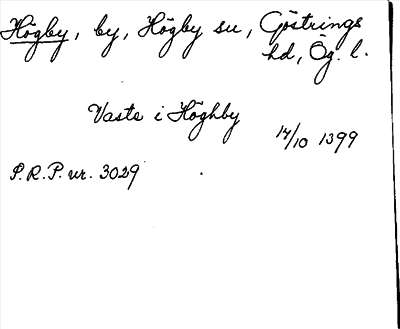 Högby, by, Högby su, Göstrings
hd, Ög. l.
Vaste i Höghby
14/10 1399
P.R.P. nr. 3029